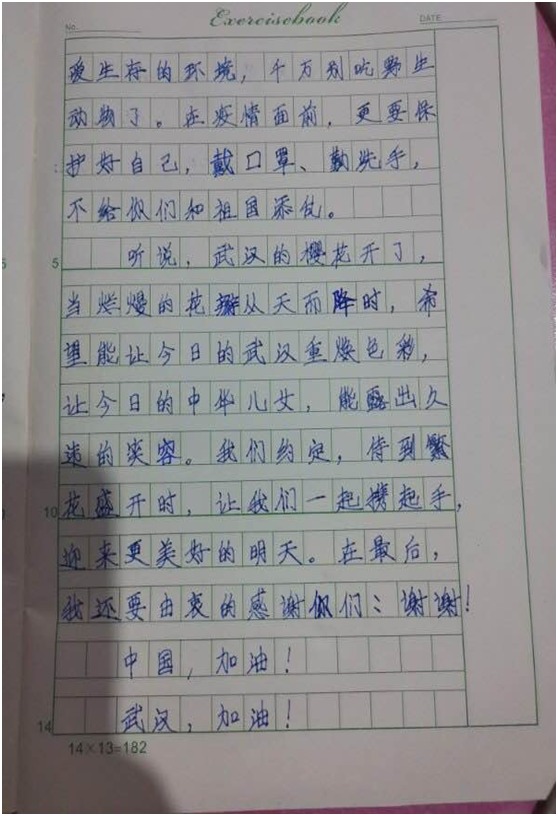 No.
Exercisebook
DATE
爱生存的环境，千万别吃野生
动物了。在疫情面前，更要保
护好自己，戴口罩、勤洗手，
不给你们和祖国添乱。
5 听说，武汉的樱花开了，
当烂熳的花瓣从天而降时，希
望能让今日的武汉重焕色彩，
让今日的中华儿女，能露出久
违的笑容。我们约定，待到繁
10 花盛开时，让我们一起携起手，
迎来更美好的明天。在最后，
我还要由衷的感谢你们：谢谢！
中国，加油！
14 武汉，加油！
14×13=182